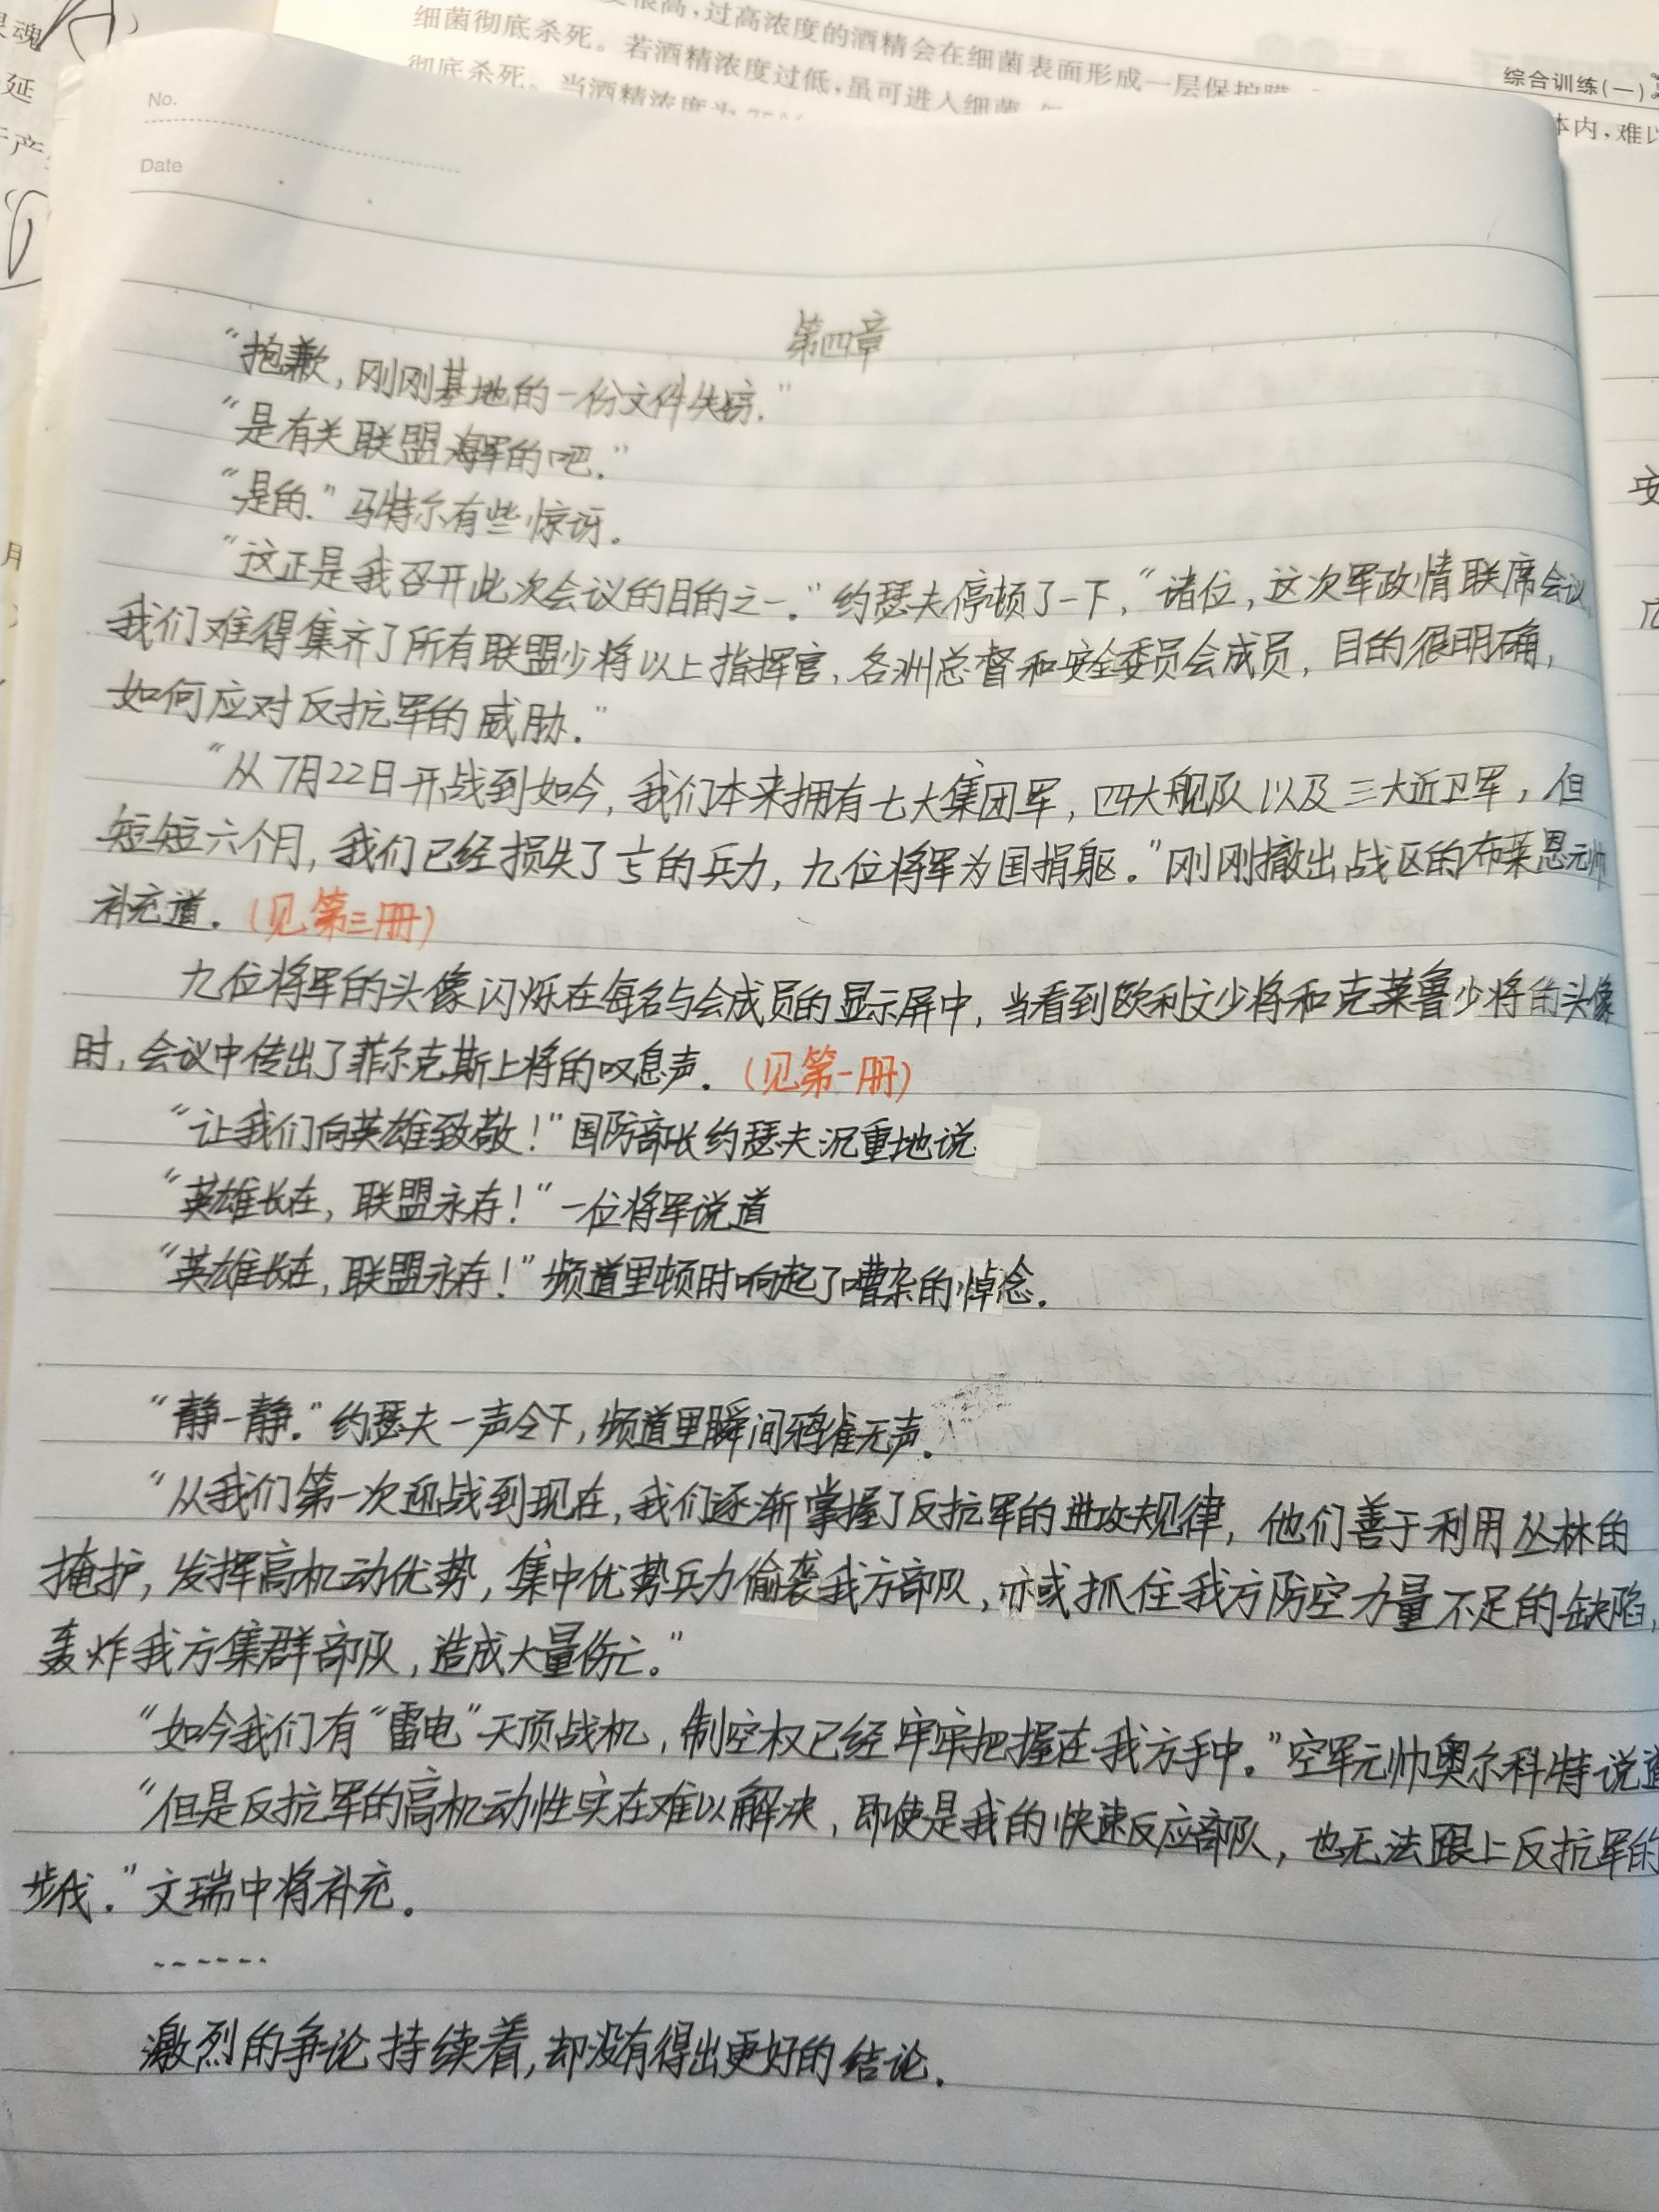 细菌彻底杀死。若酒精浓度过低,虽可进入细菌
很高,过高浓度的酒精会在细菌表面形成一层保护膜
彻底杀死。当酒精浓度为
综合训练(一)
本内,难以
No.
Date
第四章
“抱歉,刚刚基地的一份文件失窃.”
“是有关联盟海军的吧.”
“是的.”马特尔有些惊讶。
“这正是我召开此次会议的目的之一.”约瑟夫停顿了一下,“诸位,这次军政情联席会议
我们难得集齐了所有联盟少将以上指挥官,各洲总督和安全委员会成员,目的很明确,
如何应对反抗军的威胁.”
“从7月22日开战到如今,我们本来拥有七大集团军,四大舰队以及三大近卫军,但
短短六个月,我们已经损失了的兵力,九位将军为国捐躯。”刚刚撤出战区的布莱恩元帅
补充道.(见第三册)
九位将军的头像闪烁在每名与会成员的显示屏中,当看到欧利文少将和克莱鲁少将的头像
时,会议中传出了菲尔克斯上将的叹息声.(见第一册)
“让我们向英雄致敬!”国防部长约瑟夫沉重地说
“英雄长在,联盟永存!”一位将军说道
“英雄长在,联盟永存!”频道里顿时响起了嘈杂的悼念.
“静一静.”约瑟夫一声令下,频道里瞬间鸦雀无声.
“从我们第一次迎战到现在,我们逐渐掌握了反抗军的进攻规律,他们善于利用丛林的
掩护,发挥高机动优势,集中优势兵力偷袭我方部队,亦或抓住我方防空力量不足的缺陷,
轰炸我方集群部队,造成大量伤亡。”
“如今我们有“雷电”天顶战机,制空权已经牢牢把握在我方手中。”空军元帅奥尔科特说道
“但是反抗军的高机动性实在难以解决,即使是我的快速反应部队,也无法跟上反抗军的
步伐.”文瑞中将补充.
------
激烈的争论持续着,却没有得出更好的结论.